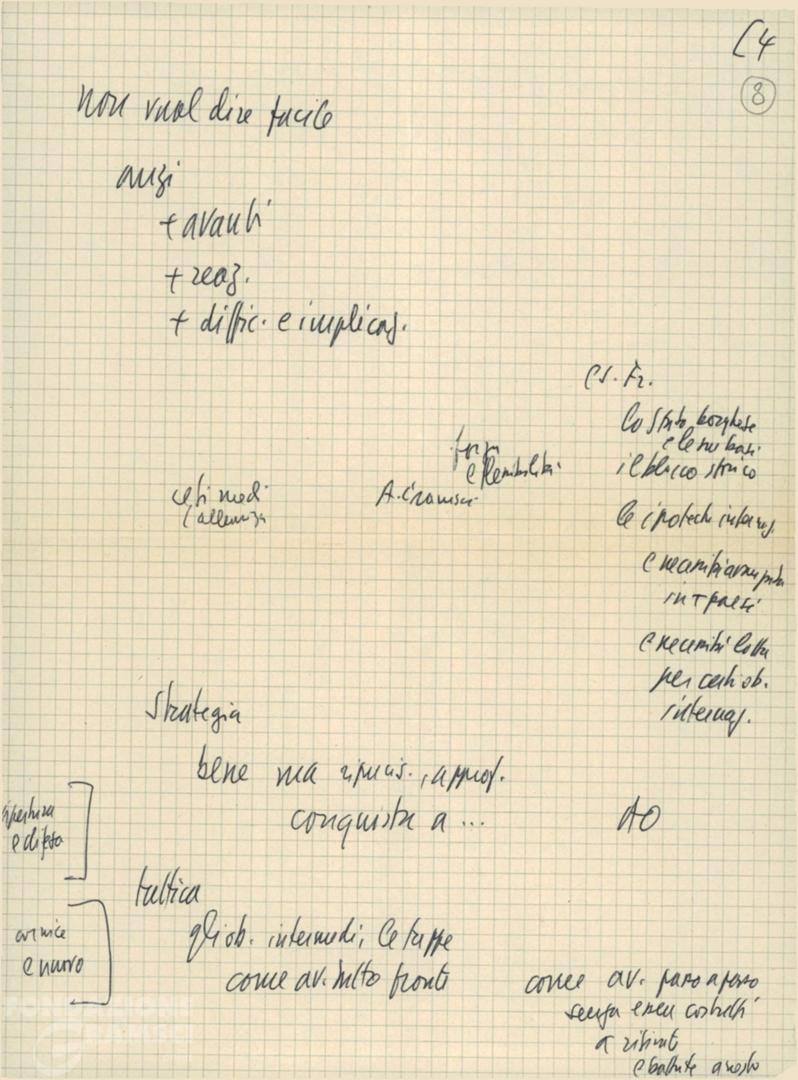 C4
8
non vuol dire facile
anzi
+ avanti
+ reaz.
+ diffic. e implicaz.
es. Fr.
lo Stato borghese
e le sue basi
il blocco storico
forza
e flessibilità
ceti medi
l'alleanza
A. Gramsci
le ipoteche internaz.
e necessità
in + paesi
e necessità lotta
per certi ob.
internaz.
strategia
bene ma riprecis., approf.
conquista a ...
AO
apertura
e difesa
tattica
gli ob. intermedi, le tappe
come av. tutto fronte
cornice
e nuovo
come av. passo a passo
senza essere costretti
a ritirate
e battute arresto